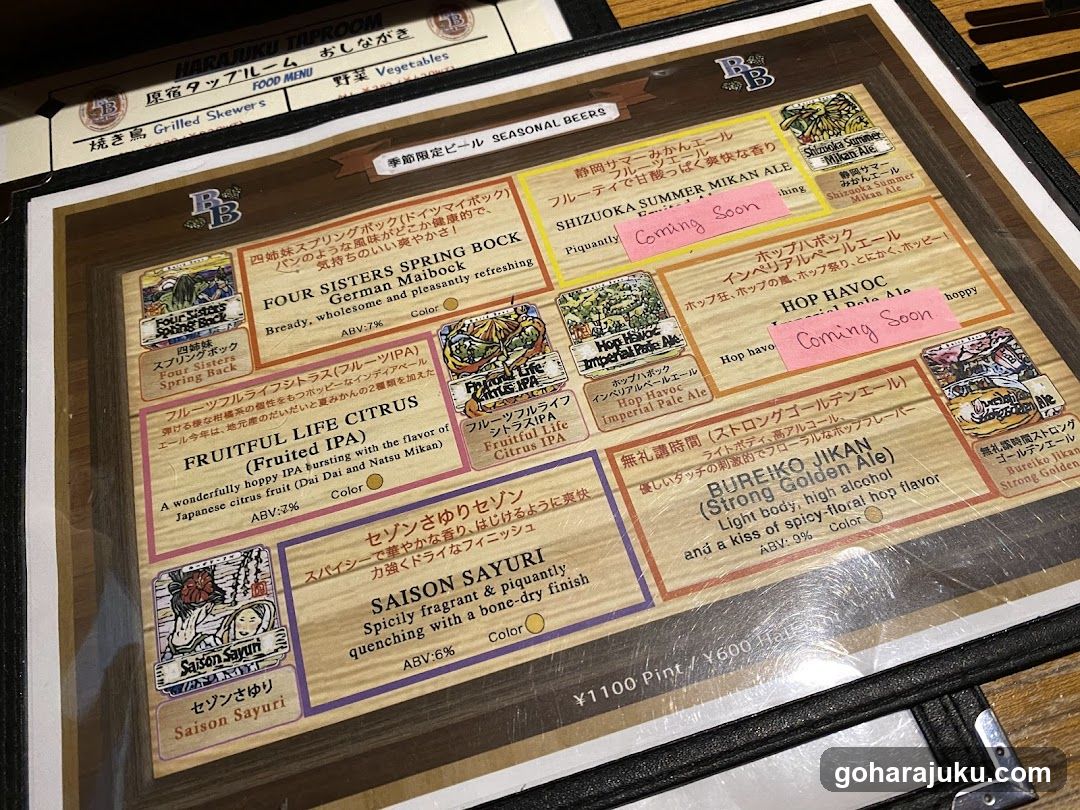 HARAJUKU TAPROOM
原宿タップルーム おしながき
FOOD MENU
焼き鳥 Grilled Skewers
野菜 Vegetables
季節限定ビール SEASONAL BEERS
BB
BB
四姉妹スプリングボック(ドイツマイボック)
パンのような風味がどこか健康的で、
気持ちのいい爽やかさ!
FOUR SISTERS SPRING BOCK
German Maibock
Bready, wholesome and pleasantly refreshing
ABV:7% Color
Four Sisters
Spring Bock
四姉妹
スプリングボック
Four Sisters
Spring Back
静岡サマーみかんエール
フルーツエール
フルーティで甘酸っぱく爽快な香り
SHIZUOKA SUMMER MIKAN ALE
Piquantly
Coming Soon
Shizuoka Summer
Mikan Ale
静岡サマー
みかんエール
Shizuoka Summer
Mikan Ale
フルーツフルライフシトラス(フルーツIPA)
弾ける様な柑橘系の個性をもつホッピーなインディアペール
エール今年は、地元産のだいだいと夏みかんの2種類を加えた
FRUITFUL LIFE CITRUS
(Fruited IPA)
A wonderfully hoppy IPA bursting with the flavor of
Japanese citrus fruit (Dai Dai and Natsu Mikan)
ABV:7% Color
Fruitful Life
Citrus IPA
フルーツフルライフ
シトラスIPA
Fruitful Life
Citrus IPA
ホップハボック
インペリアルペールエール
ホップ狂、ホップの嵐、ホップ祭り、とにかく、ホッピー!
HOP HAVOC
Imperial Pale Ale
Hop havoc
hoppy
Coming Soon
Hop Havoc
Imperial Pale Ale
ホップハボック
インペリアルペールエール
Hop Havoc
Imperial Pale Ale
セゾンさゆりセゾン
スパイシーで華やかな香り、はじけるように爽快
力強くドライなフィニッシュ
SAISON SAYURI
Spicily fragrant & piquantly
quenching with a bone-dry finish
ABV:6% Color
Saison Sayuri
セゾンさゆり
Saison Sayuri
無礼講時間 (ストロングゴールデンエール)
ライトボディ、高アルコール、
優しいタッチの刺激的でフローラルなホップフレーバー
BUREIKO JIKAN
(Strong Golden Ale)
Light body, high alcohol
and a kiss of spicy-floral hop flavor
ABV: 9% Color
無礼講時間ストロング
ゴールデンエール
Bureiko Jikan
Strong Golden
¥1100 Pint / ¥600 Half
goharajuku.com